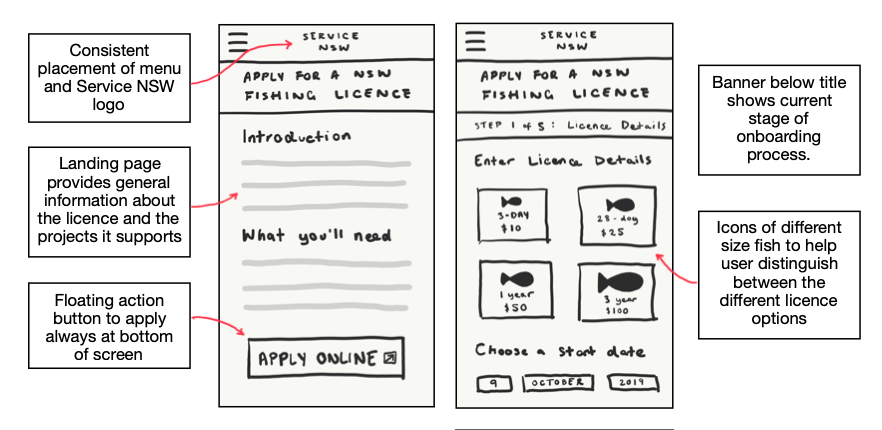 Consistent
placement of menu
and Service NSW
logo
Landing page
provides general
information about
the licence and the
projects it supports
Floating action
button to apply
always at bottom
of screen
SERVICE
NSW
APPLY FOR A NSW
FISHING LICENCE
Introduction
What you'll need
APPLY ONLINE
SERVICE
NSW
APPLY FOR A NSW
FISHING LICENCE
STEP 1 of 5: Licence Details
Enter Licence Details
3-DAY
$10
28-day
$25
1 year
$50
3 year
$100
Choose a start date
9 OCTOBER 2019
Banner below title
shows current
stage of
onboarding
process.
Icons of different
size fish to help
user distinguish
between the
different licence
options